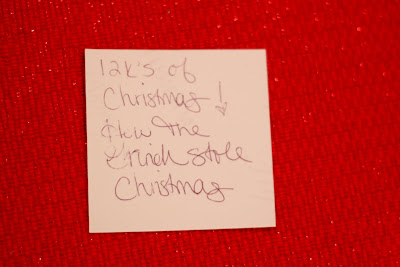 12k's of
Christmas!
How the
Grinch stole
Christmas